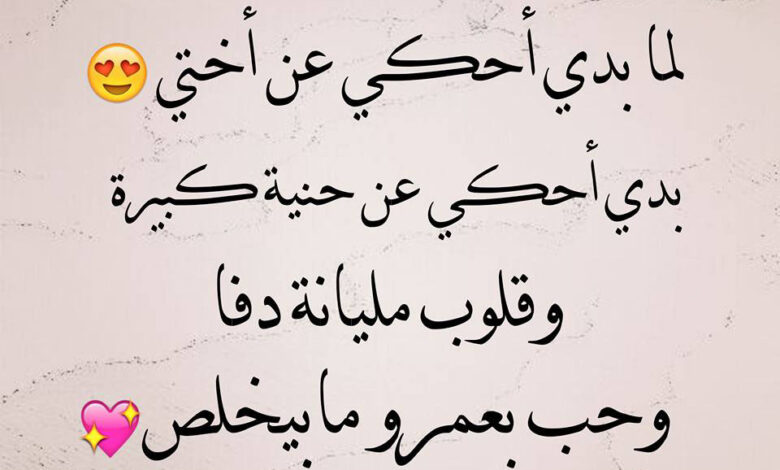 لما بدي أحكي عن أختي 😍
بدي أحكي عن حنية كبيرة
وقلوب مليانة دفا
وحب بعمرو ما بيخلص 💖